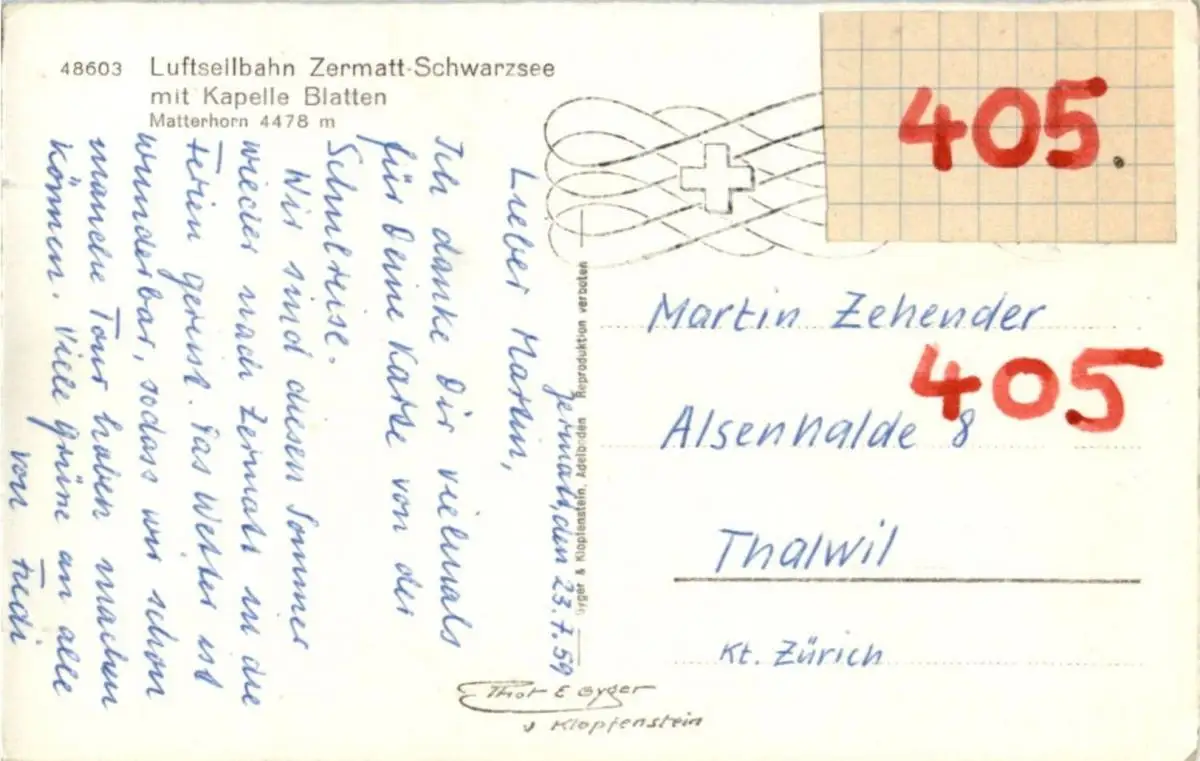 48603 Luftseilbahn Zermatt-Schwarzsee
mit Kapelle Blatten
Matterhorn 4478 m
405.
Zermatt, den 23.7.59
Lieber Martin,
Ich danke Dir vielmals
für Deine Karte von der
Schulreise.
Wir sind diesen Sommer
wieder nach Zermatt in die
Ferien gereist. Das Wetter ist
wunderbar, sodass wir schon
manche Tour haben machen
können. Viele Grüsse an alle
von
Gyger & Klopfenstein, Adelboden Reproduktion verboten
Martin Zehender
405
Alsenhalde 8
Thalwil
Kt. Zürich
Phot E Gyger
Klopfenstein